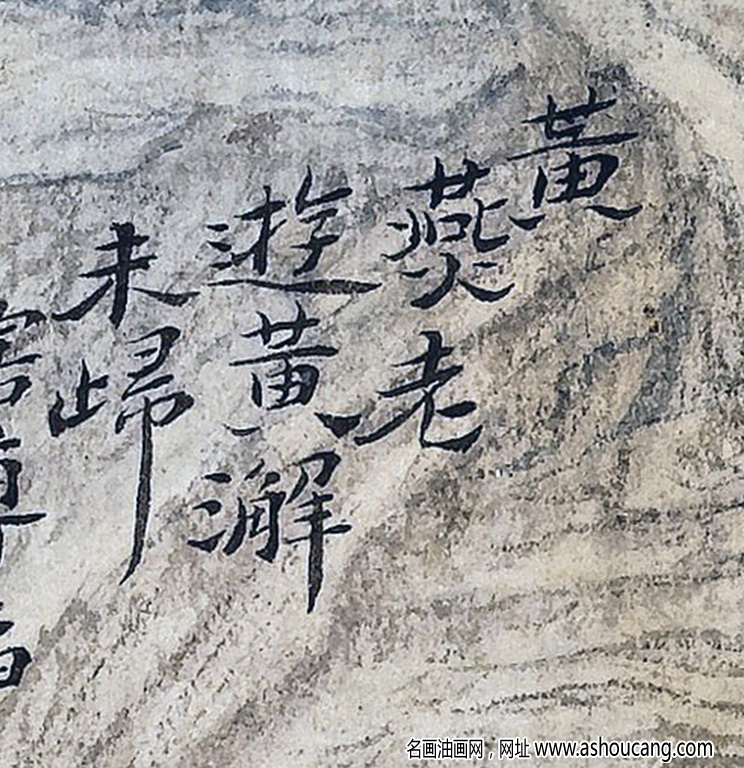 黃
燕老
遊黃澥
未歸
名画油画网，网址 www.ashoucang.com